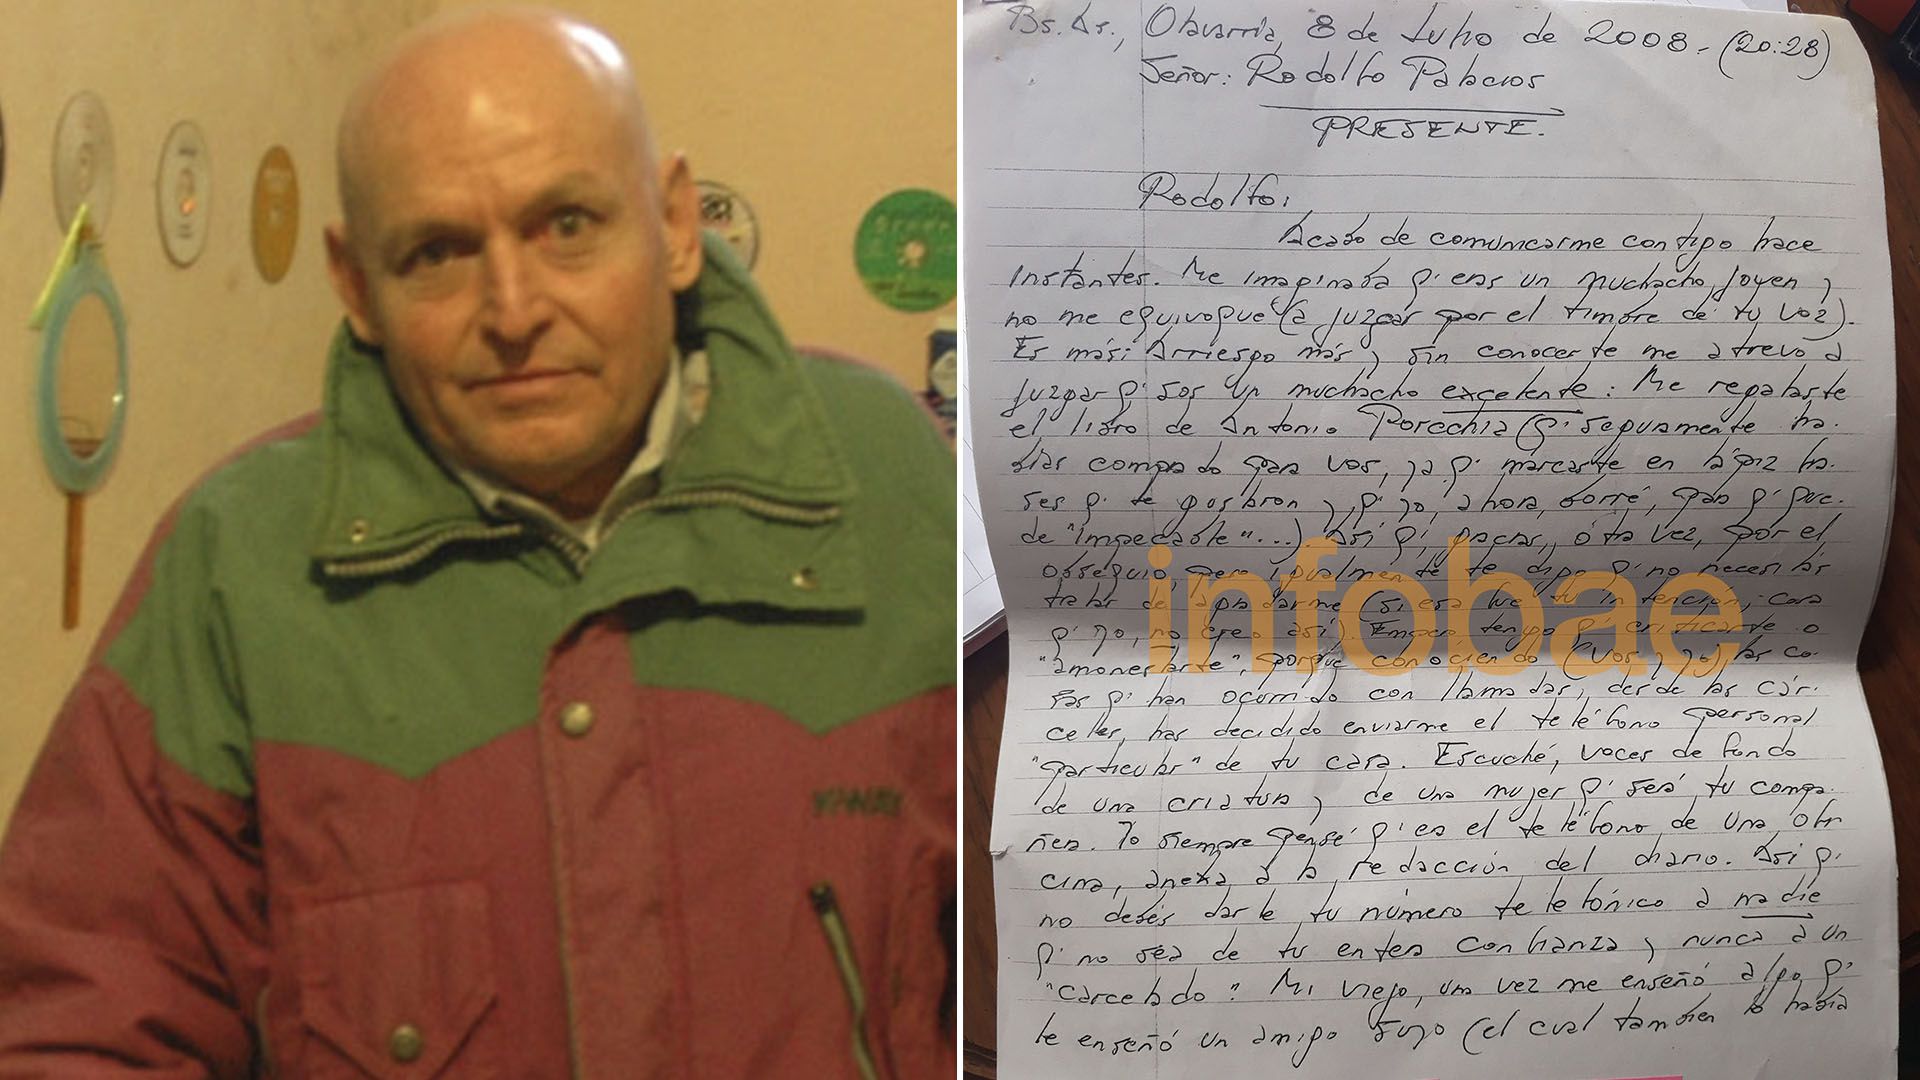 Bs. As., Olavarría, 8 de Julio de 2008.- (20:28)
Señor: Rodolfo Palacios
PRESENTE.
Rodolfo:
Acabo de comunicarme contigo hace
instantes. Me imaginaba q' eras un muchacho joven y
no me equivoqué (a juzgar por el timbre de tu voz).
Es más: Arriesgo más y sin conocerte me atrevo a
juzgar q' sos un muchacho excelente: Me regalaste
el libro de Antonio Porchia (q' seguramente ha-
bías comprado para vos, ya q' marcaste en lápiz fra-
ses q' te gustaron y q' yo, ahora, borré, para q' que-
de "impecable"...). Así q', gracias, otra vez, por el
obsequio, pero igualmente te digo q' no necesi
tabas de (si esa fue tu intención, cosa
q' yo, no creo así). Empero, tengo q' criticarte o
"amonestarte", porque conociendo (vos y yo) las co-
sas q' han ocurrido con llamadas, desde las cár-
celes, has decidido enviarme el teléfono personal
"particular" de tu casa. Escuché, voces de fondo
de una criatura y de una mujer q' será, tu compa-
ñera. Yo siempre pensé q' era el teléfono de una ofi-
cina, anexa a la redacción del diario. Así q'
no debés darle tu número telefónico a nadie
q' no sea de tu entera confianza y nunca a un
"carcelado". Mi viejo, una vez me enseñó algo q'
le enseñó un amigo suyo (el cual también lo había
infobae